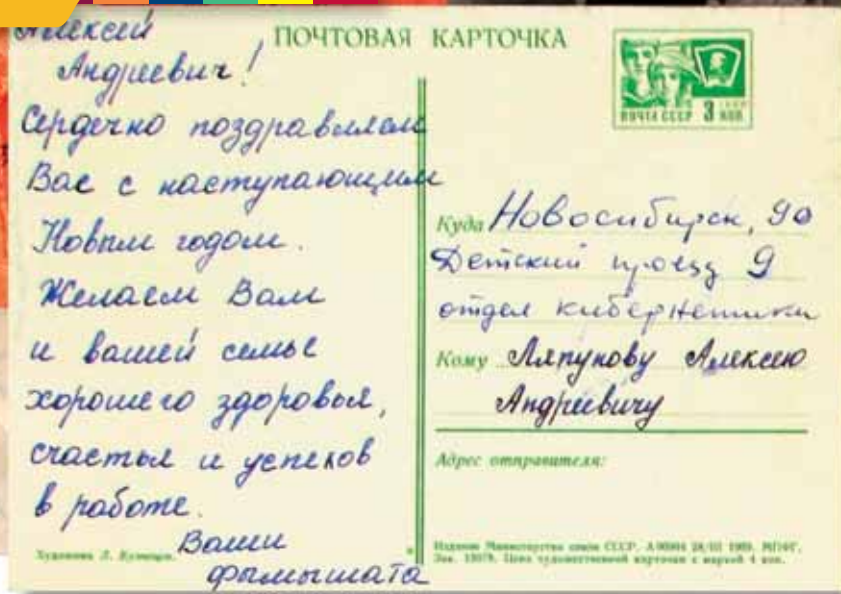 Алексей
Андреевич!
Сердечно поздравляем
Вас с наступающим
Новым годом.
Желаем Вам
и вашей семье
хорошего здоровья,
счастья и успехов
в работе.
Ваши
фымышата
Художник Л. Кузнецов.
ПОЧТОВАЯ КАРТОЧКА
ПОЧТА СССР 3 КОП.
Куда Новосибирск, 90
Детский проезд 9
отдел кибернетики
Кому Ляпунову Алексею
Андреевичу
Адрес отправителя:
Издание Министерства связи СССР. 28/III 1969. МПФГ.
Зак. Цена художественной карточки с маркой 4 коп.